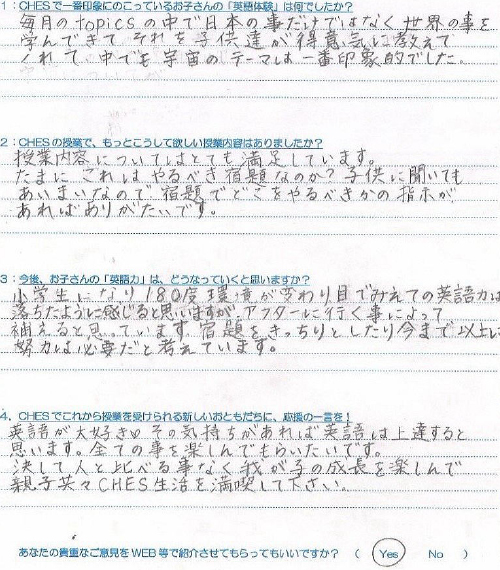 1：CHESで一番印象にのこっているお子さんの「英語体験」は何でしたか？
毎月のtopicsの中で日本の事だけではなく世界の事を
学んできて それを子供達が得意気に教えて
くれて、中でも宇宙のテーマは一番印象的でした。
2：CHESの授業で、もっとこうして欲しい授業内容はありましたか？
授業内容についてはとても満足しています。
たまに これはやるべき宿題なのか？子供に聞いても
あいまいなので 宿題でどこをやるべきかの 指示が
あればありがたいです。
3：今後、お子さんの「英語力」は、どうなっていくと思いますか？
小学生になり 180度環境が変わり目でみえての英語力は
落ちたように感じると思いますが、アフターに行く事によって
補えると思っています 宿題をきっちりとしたり今まで以上に
努力は必要だと考えています。
4．CHESでこれから授業を受けられる新しいおともだちに、応援の一言を！
英語が大好き♡その気持ちがあれば英語は上達すると
思います。全ての事を楽しんでもらいたいです。
決して人と比べる事なく我が子の成長を楽しんで
親子共々CHES生活を満喫して下さい。
あなたの貴重なご意見をWEB等で紹介させてもらってもいいですか？ （ Yes No ）